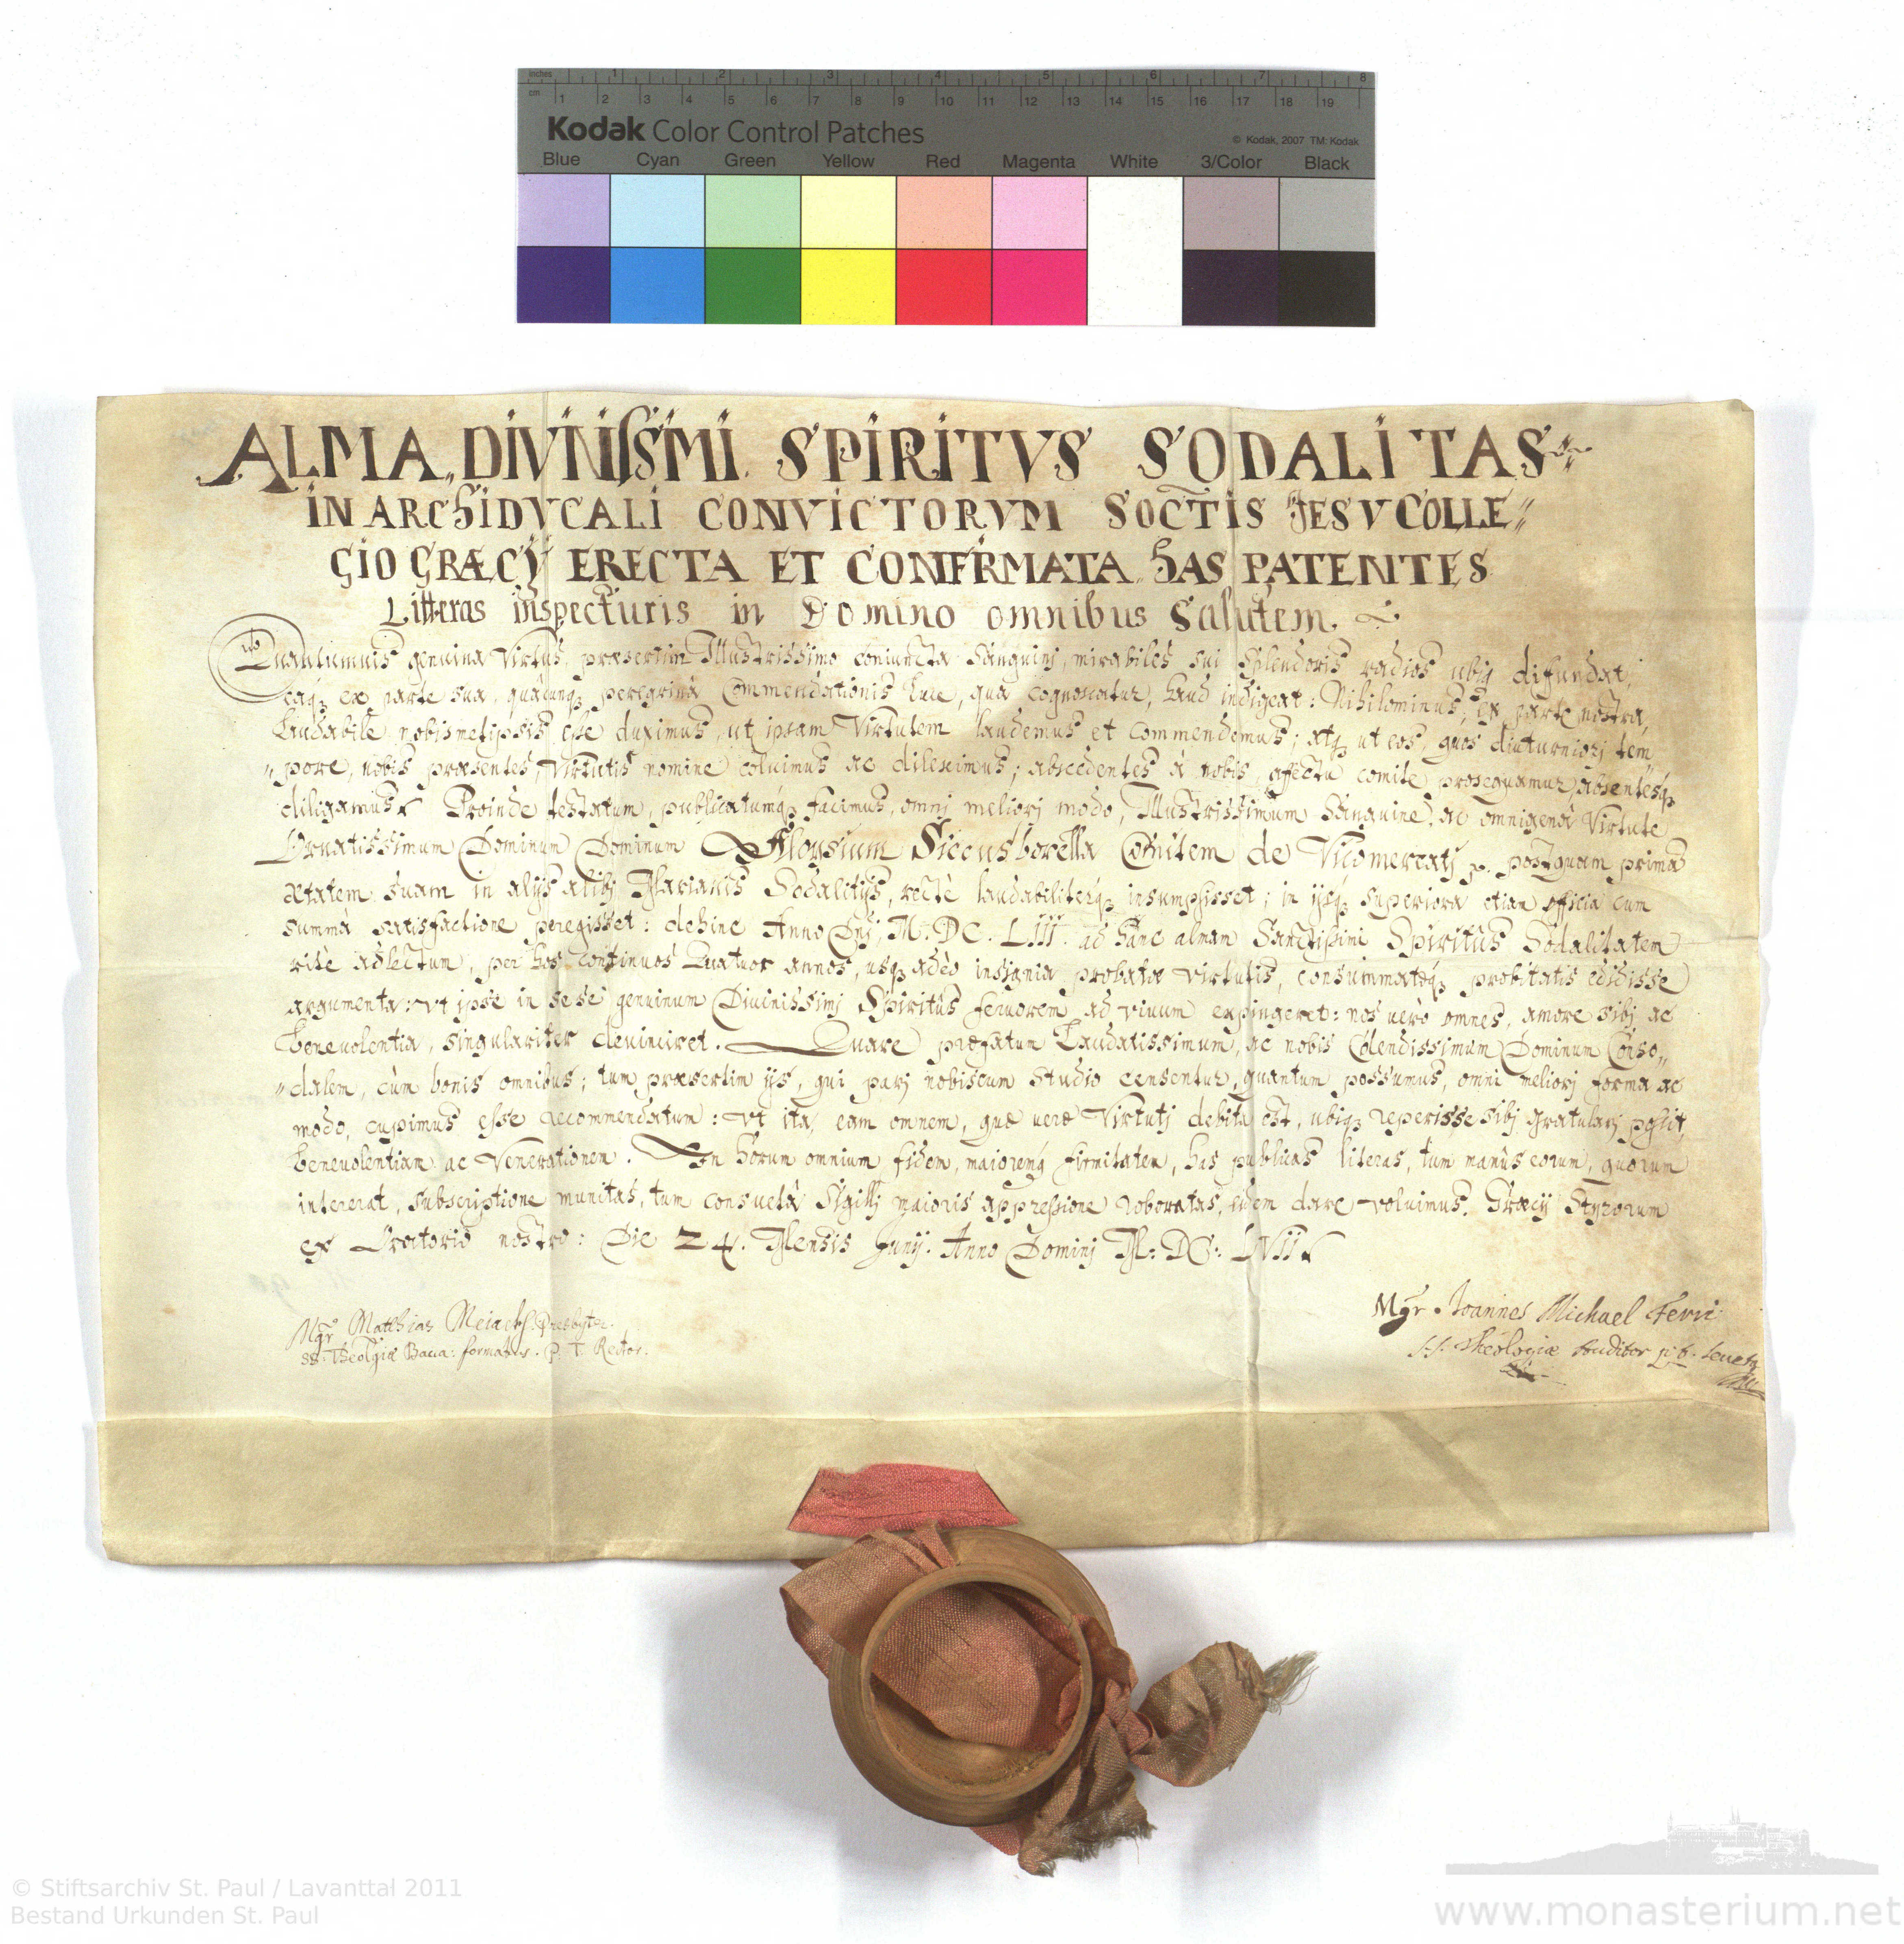 inches 1 2 3 4 5 6 7 8
cm 1 2 3 4 5 6 7 8 9 10 11 12 13 14 15 16 17 18 19
Kodak Color Control Patches
© Kodak, 2007 TM: Kodak
Blue Cyan Green Yellow Red Magenta White 3/Color Black
ALMA DIVNISSMI SPIRITVS SODALITAS
IN ARCHIDVCALI CONVICTORVM SOCTIS JESV COLLE〃
GIO GRÆCIJ ERECTA ET CONFIRMATA HAS PATENTES
Litteras inspecturis in Domino omnibus Salutem.
Quantumuis genuina Virtus, præsertim Illustrissimo coniuncta Sanguinj, mirabiles sui Splendoris radios ubiq difundat,
eaq ex parte sua, quacunq peregrina Commendationis luce, qua cognoscatur, haud indigeat: Nihilominus, ex parte nostra,
Laudabile nobismetipsis esse duximus, ut ipsam Virtutem laudemus et commendemus; atq ut eos, quos diuturniorj tem„
„pore, nobis præsentes, Virtutis nomine coluimus ac dileximus; abscedentes à nobis, affectu comite prosequamur, absentesq
diligamus. Proinde testatum, publicatumq facimus, omnj meliorj modo, Illustrissimum Sanguine, ac omnigenâ Virtute
Ornatissimum Dominum Dominum Aloysium Siccusborella Comitem de Vicomercatj p. postquam prima
ætatem suam in alijs alibj Marianis Sodalitijs, rectè laudabiliterq insumpsisset; in ijsq superiora etiam officia cum
summâ satisfactione peregisset: dehinc Anno Dnj, M. DC. LIII. ad hanc almam Sanctissimi Spiritûs Sodalitatem
ritè adlectum, per hos continuos Quatuor annos, usq adeò insignia probatæ virtutis, consummatæq probitatis edidisse
argumenta: Vt ipse in sese genuinum Diuinissimj Spiritûs feruorem ad viuum expingeret: nos verò omnes, amore sibj ac
beneuolentia, singulariter deuinciret. Quare præfatum Laudatissimum, ac nobis Colendissimum Dominum Conso„
„dalem, cùm bonis omnibus; tum præsertim ijs, qui parj nobiscum studio censentur, quantum possumus, omni meliorj forma ac
modo, cupimus esse recommendatum: Vt ita, eam omnem, quæ veræ Virtutj debita est, ubiq reperisse sibj gratularj possit,
beneuolentiam ac Venerationem. In horum omnium fidem, maioremq firmitatem, has publicas literas, tum manûs eorum, quorum
intererat, subscriptione munitas, tum consuetâ Sigillj maioris appressione roboratas, idem dare voluimus. Græcij Styrorum
ex Oratorio nostro: Die 24. Mensis Junij. Anno Dominj M: DC: LVII
Mgr Matthias Presbyter.
SS. Theolgiæ Bacca: formatus. P. T. Rector.
Mgr. Joannes Michael
SS. Theologiæ Auditor
© Stiftsarchiv St. Paul / Lavanttal 2011
Bestand Urkunden St. Paul
www.monasterium.net